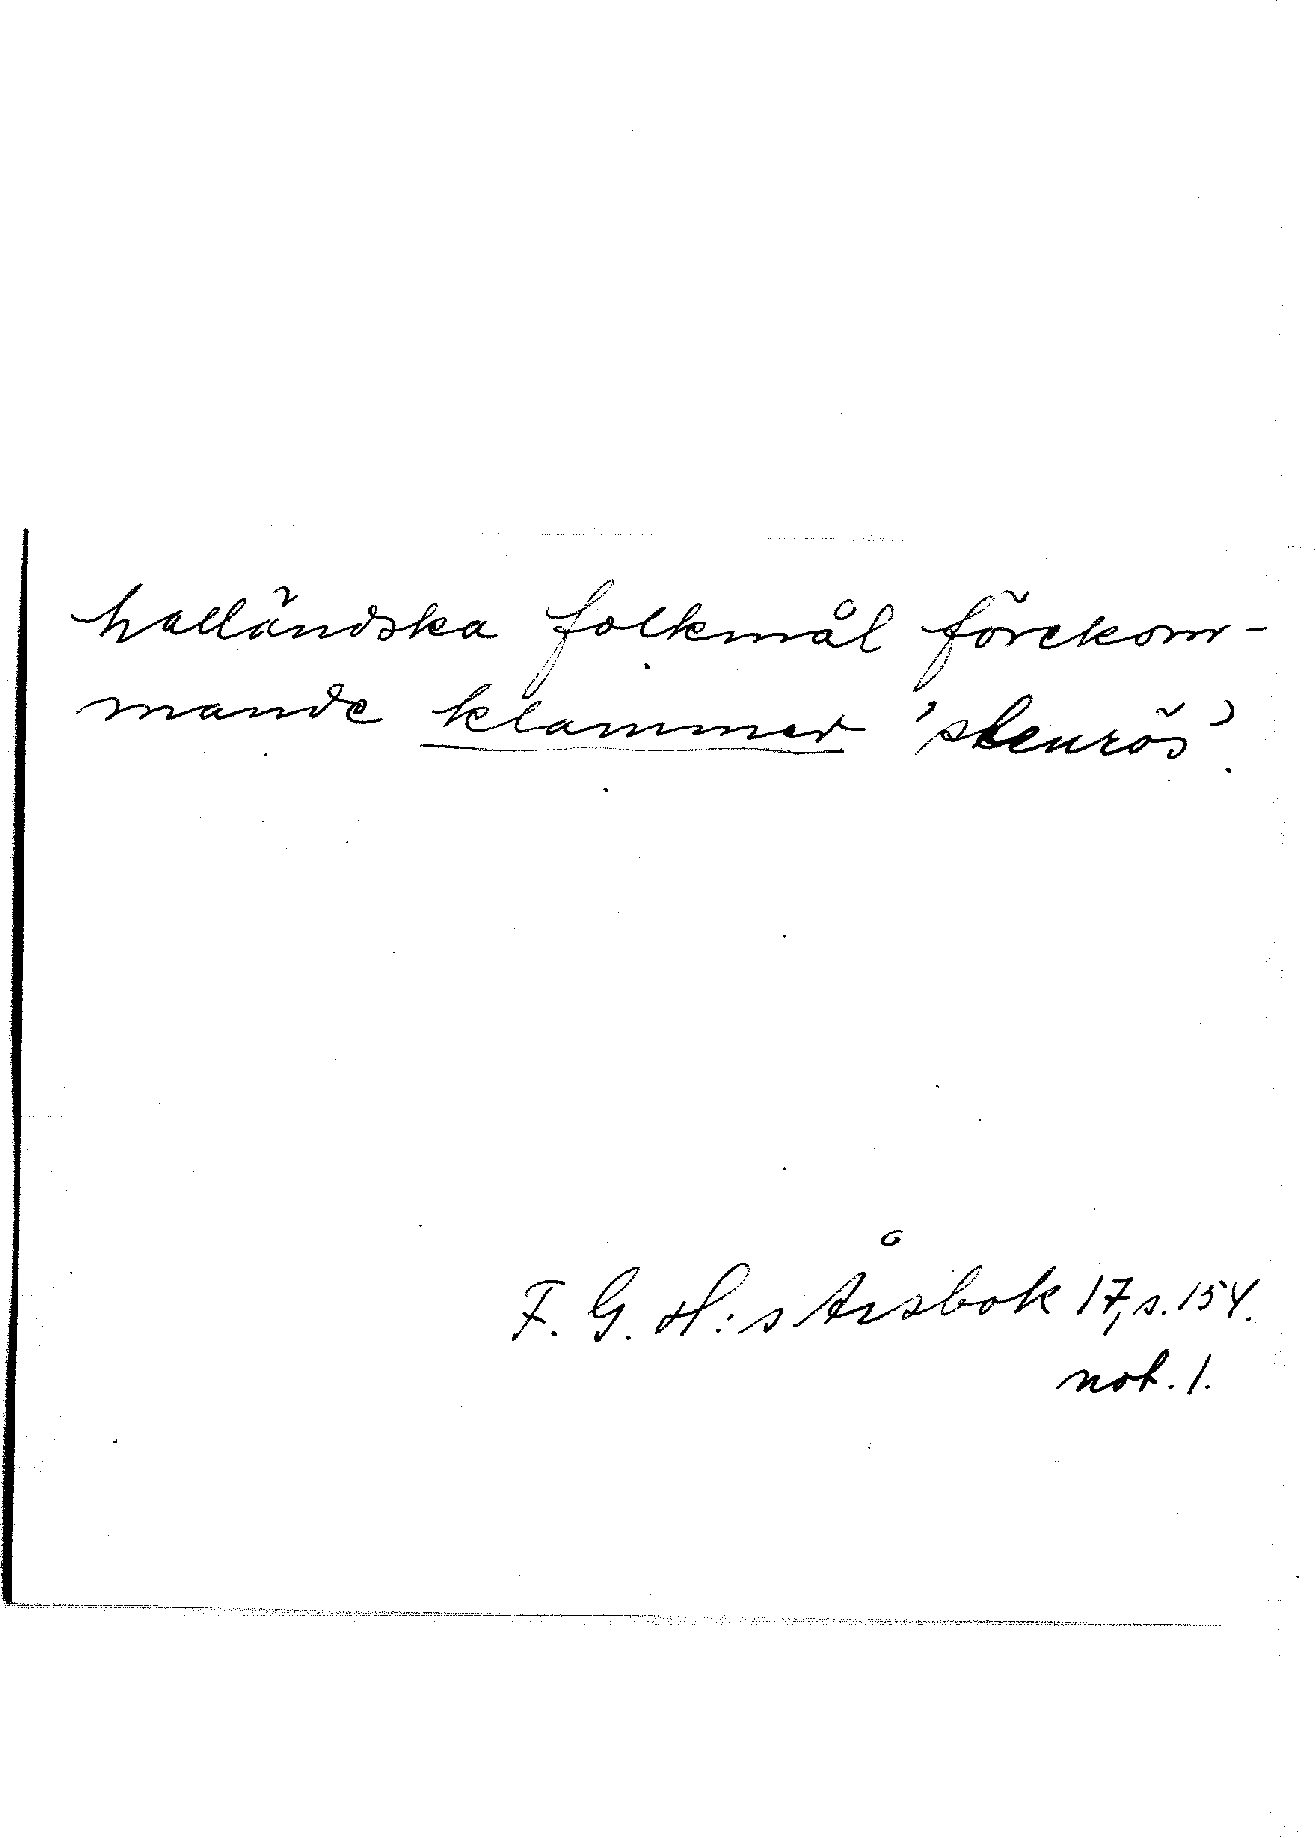 halländska folkmål förekom-
mande klammer 'stenrös'.
F. G. H:s Årsbok 17, s. 154.
not. 1.